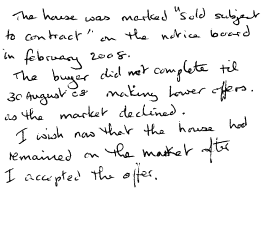 The house was marked "sold subject
to contract" on the notice board
in february 2008.
The buyer did not complete til
30 August 08 making lower offers.
as the market declined.
I wish now that the house had
remained on the market after
I accepted the offer.